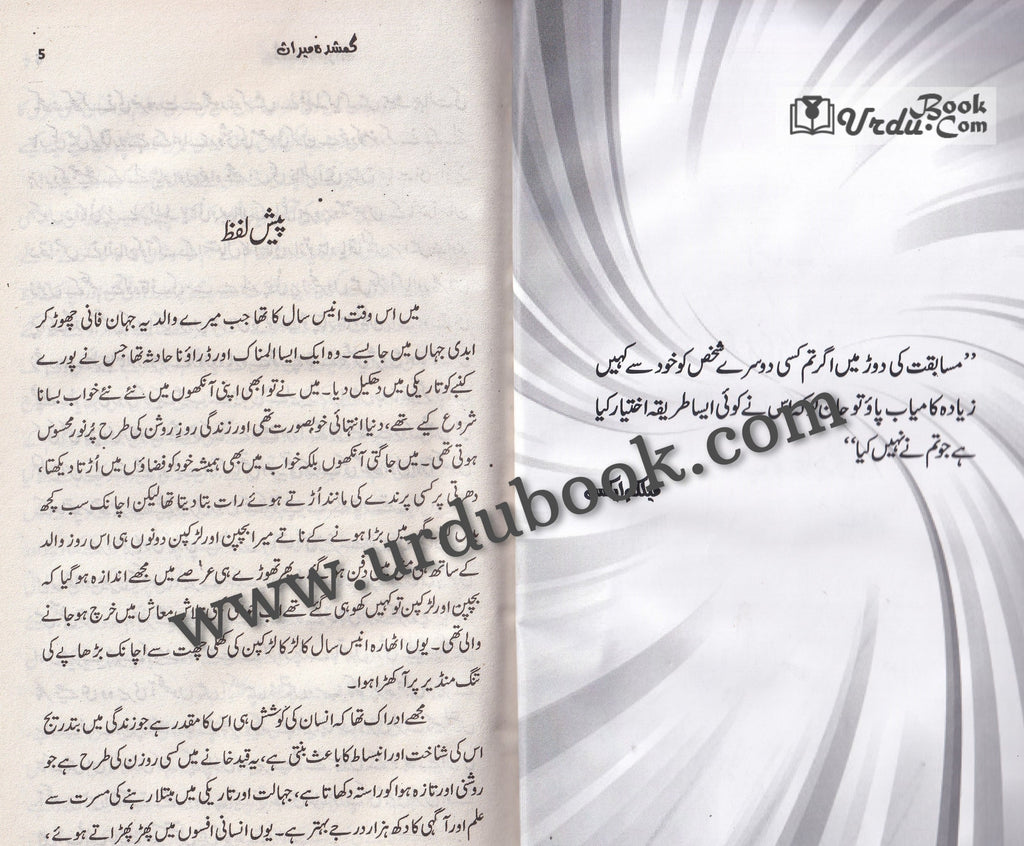 Urdu Book.Com
”مسابقت کی دوڑ میں اگر تم کسی دوسرے شخص کو خود سے کہیں
زیادہ کامیاب پاؤ تو جان لو کہ اس نے کوئی ایسا طریقہ اختیار کیا
ہے جو تم نے نہیں کیا“
www.urdubook.com
گمشدہ میراث
5
پیش لفظ
میں اس وقت انیس سال کا تھا جب میرے والد یہ جہان فانی چھوڑ کر
ابدی جہاں میں جا بسے۔ وہ ایک ایسا المناک اور ڈراؤنا حادثہ تھا جس نے پورے
کنبے کو تاریکی میں دھکیل دیا۔ میں نے تو ابھی اپنی آنکھوں میں نئے نئے خواب بسانا
شروع کیے تھے، دنیا انتہائی خوبصورت تھی اور زندگی روزِ روشن کی طرح پُر نور محسوس
ہوتی تھی۔ میں جاگتی آنکھوں بلکہ خواب میں بھی ہمیشہ خود کو فضاؤں میں اُڑتا دیکھتا،
دھرتی پر کسی پرندے کی مانند اُڑتے ہوئے رات بتا دیتا تھا لیکن اچانک سب کچھ
میں بڑا ہونے کے ناتے میرا بچپن اور لڑکپن دونوں ہی اس روز والد
کے ساتھ ہی میں دفن پھر تھوڑے ہی عرصے میں مجھے اندازہ ہو گیا کہ
بچپن اور لڑکپن تو کہیں کھو ہی گئے تھے معاش میں خرچ ہو جانے
والی تھی۔ یوں اٹھارہ انیس سال کا لڑکا لڑکپن کی کھلی چھت سے اچانک بڑھاپے کی
تنگ منڈیر پر آ کھڑا ہوا۔
مجھے ادراک تھا کہ انسان کی کوشش ہی اس کا مقدر ہے جو زندگی میں بتدریج
اس کی شناخت اور انبساط کا باعث بنتی ہے، یہ قید خانے میں کسی روزن کی طرح ہے جو
روشنی اور تازہ ہوا کو راستہ دکھاتا ہے، جہالت اور تاریکی میں مبتلا رہنے کی مسرت سے
علم اور آگہی کا دکھ ہزار درجے بہتر ہے۔ یوں انسانی افسوں میں پھڑپھڑاتے ہوئے،